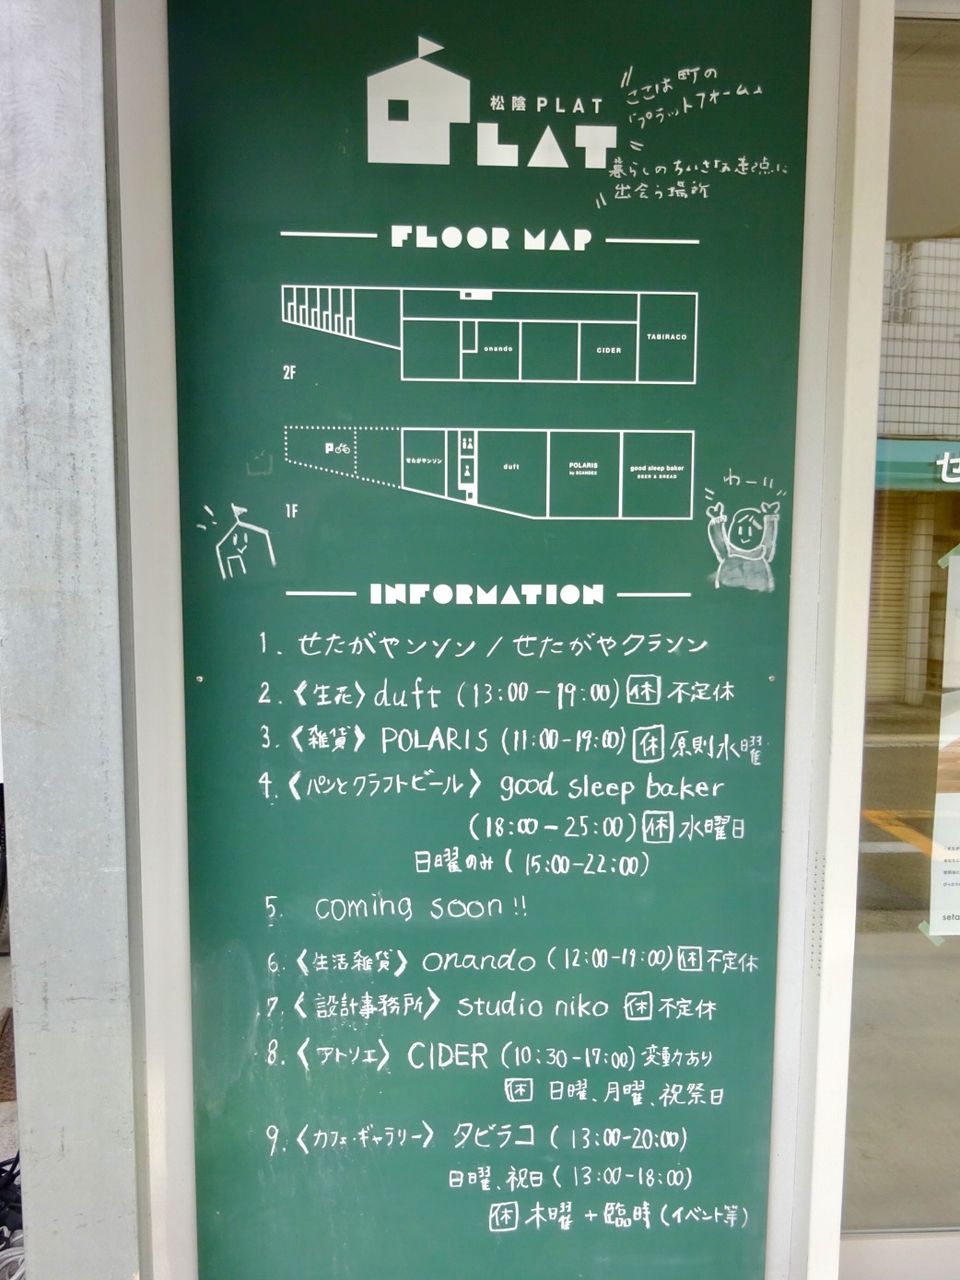 松陰PLAT
PLAT
ここは町の
「プラットフォーム」
暮らしのちいさな起点に
出会う場所
FLOOR MAP
onando
CIDER
TABIRACO
2F
P
せたがやンソン
duft
POLARIS
by SCANDEX
good sleep baker
BEER & BREAD
1F
わーい
INFORMATION
1. せたがやンソン/せたがやクラソン
2.〈生花〉duft (13:00-19:00) 休 不定休
3.〈雑貨〉POLARIS (11:00-19:00) 休 原則水曜
4.〈パンとクラフトビール〉good sleep baker
(18:00-25:00) 休 水曜日
日曜のみ(15:00-22:00)
5. coming soon!!
6.〈生活雑貨〉onando (12:00-19:00) 休 不定休
7.〈設計事務所〉studio niko 休 不定休
8.〈アトリエ〉CIDER (10:30-17:00) 変動あり
休 日曜、月曜、祝祭日
9.〈カフェ・ギャラリー〉タビラコ (13:00-20:00)
日曜、祝日(13:00-18:00)
休 木曜+臨時(イベント等)
セ
seta